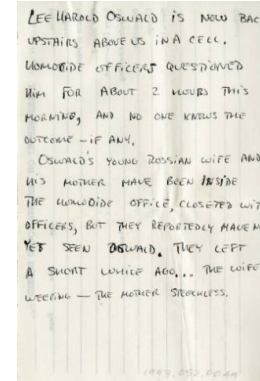 LEE HAROLD OSWALD IS NOW BAC
UPSTAIRS ABOVE US IN A CELL.
HOMOCIDE OFFICERS QUESTIONED
HIM FOR ABOUT 2 HOURS THIS
MORNING, AND NO ONE KNOWS THE
OUTCOME — IF ANY.
OSWALD'S YOUNG RUSSIAN WIFE AND
HIS MOTHER HAVE BEEN INSIDE
THE HOMOCIDE OFFICE, CLOSETED WIT
OFFICERS, BUT THEY REPORTEDLY HAVE N
YET SEEN OSWALD. THEY LEFT
A SHORT WHILE AGO... THE WIFE
WEEPING — THE MOTHER SPEECHLESS.